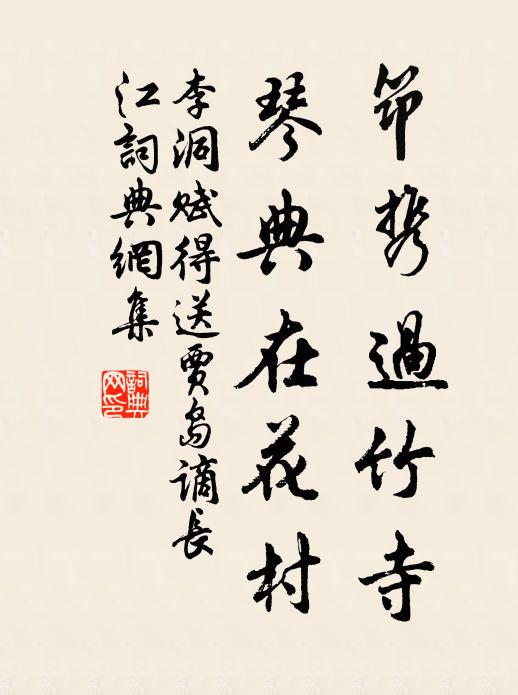 筇携過竹寺
琴典在花村
李洞賦得送賈島謫長
江詞典網集
詞典
网印